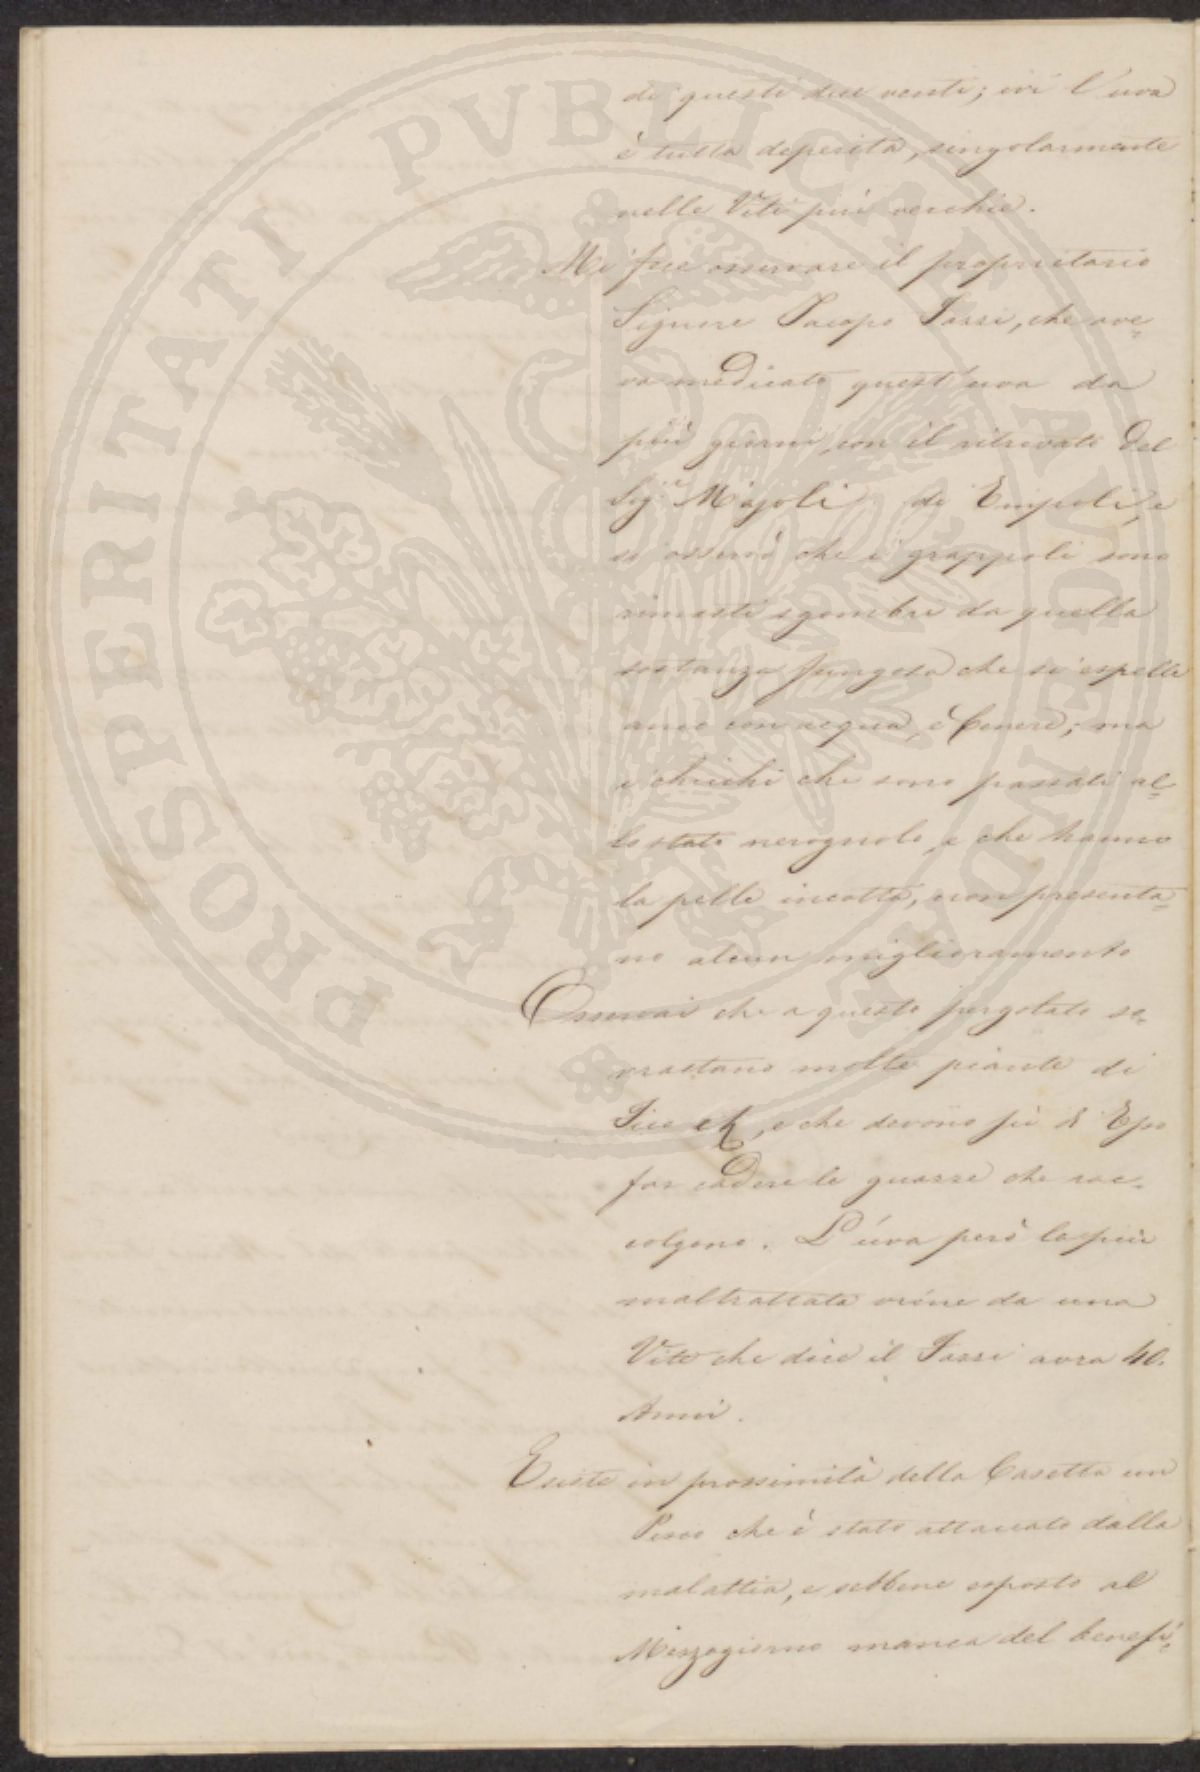 di questi due venti; ivi l'uva
è tutta deperita, singolarmente
nelle Viti più vecchie.
Mi fece osservare il proprietario
Signore Jacopo Tassi, che ave=
va medicato quest'uva da
più giorni con il ritrovato del
Sigr. Majoli di Empoli, e
si osservò che i grappoli sono
rimasti sgombri da quella
sostanza fungosa che si espelle
anco con acqua, e Cenere; ma
i chicchi che sono passati al=
lo stato nerognolo, e che hanno
la pelle incotta, non presenta=
no alcun miglioramento
Osservai che a questo pergolato so=
vrastano molte piante di
e che devono
far cadere le guazze che rac=
colgono. L'uva però la più
maltrattata viene da una
Vite che dice il Tassi avra 40.
Anni.
Esiste in prossimità della Casetta un
Pesco che è stato attaccato dalla
malattia, e sebbene esposto al
Mezzogiorno manca del benefi=
PROSPERITATI PUBLICAE AUGENDAE